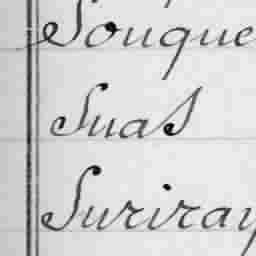 Souque
Suas
Suriray